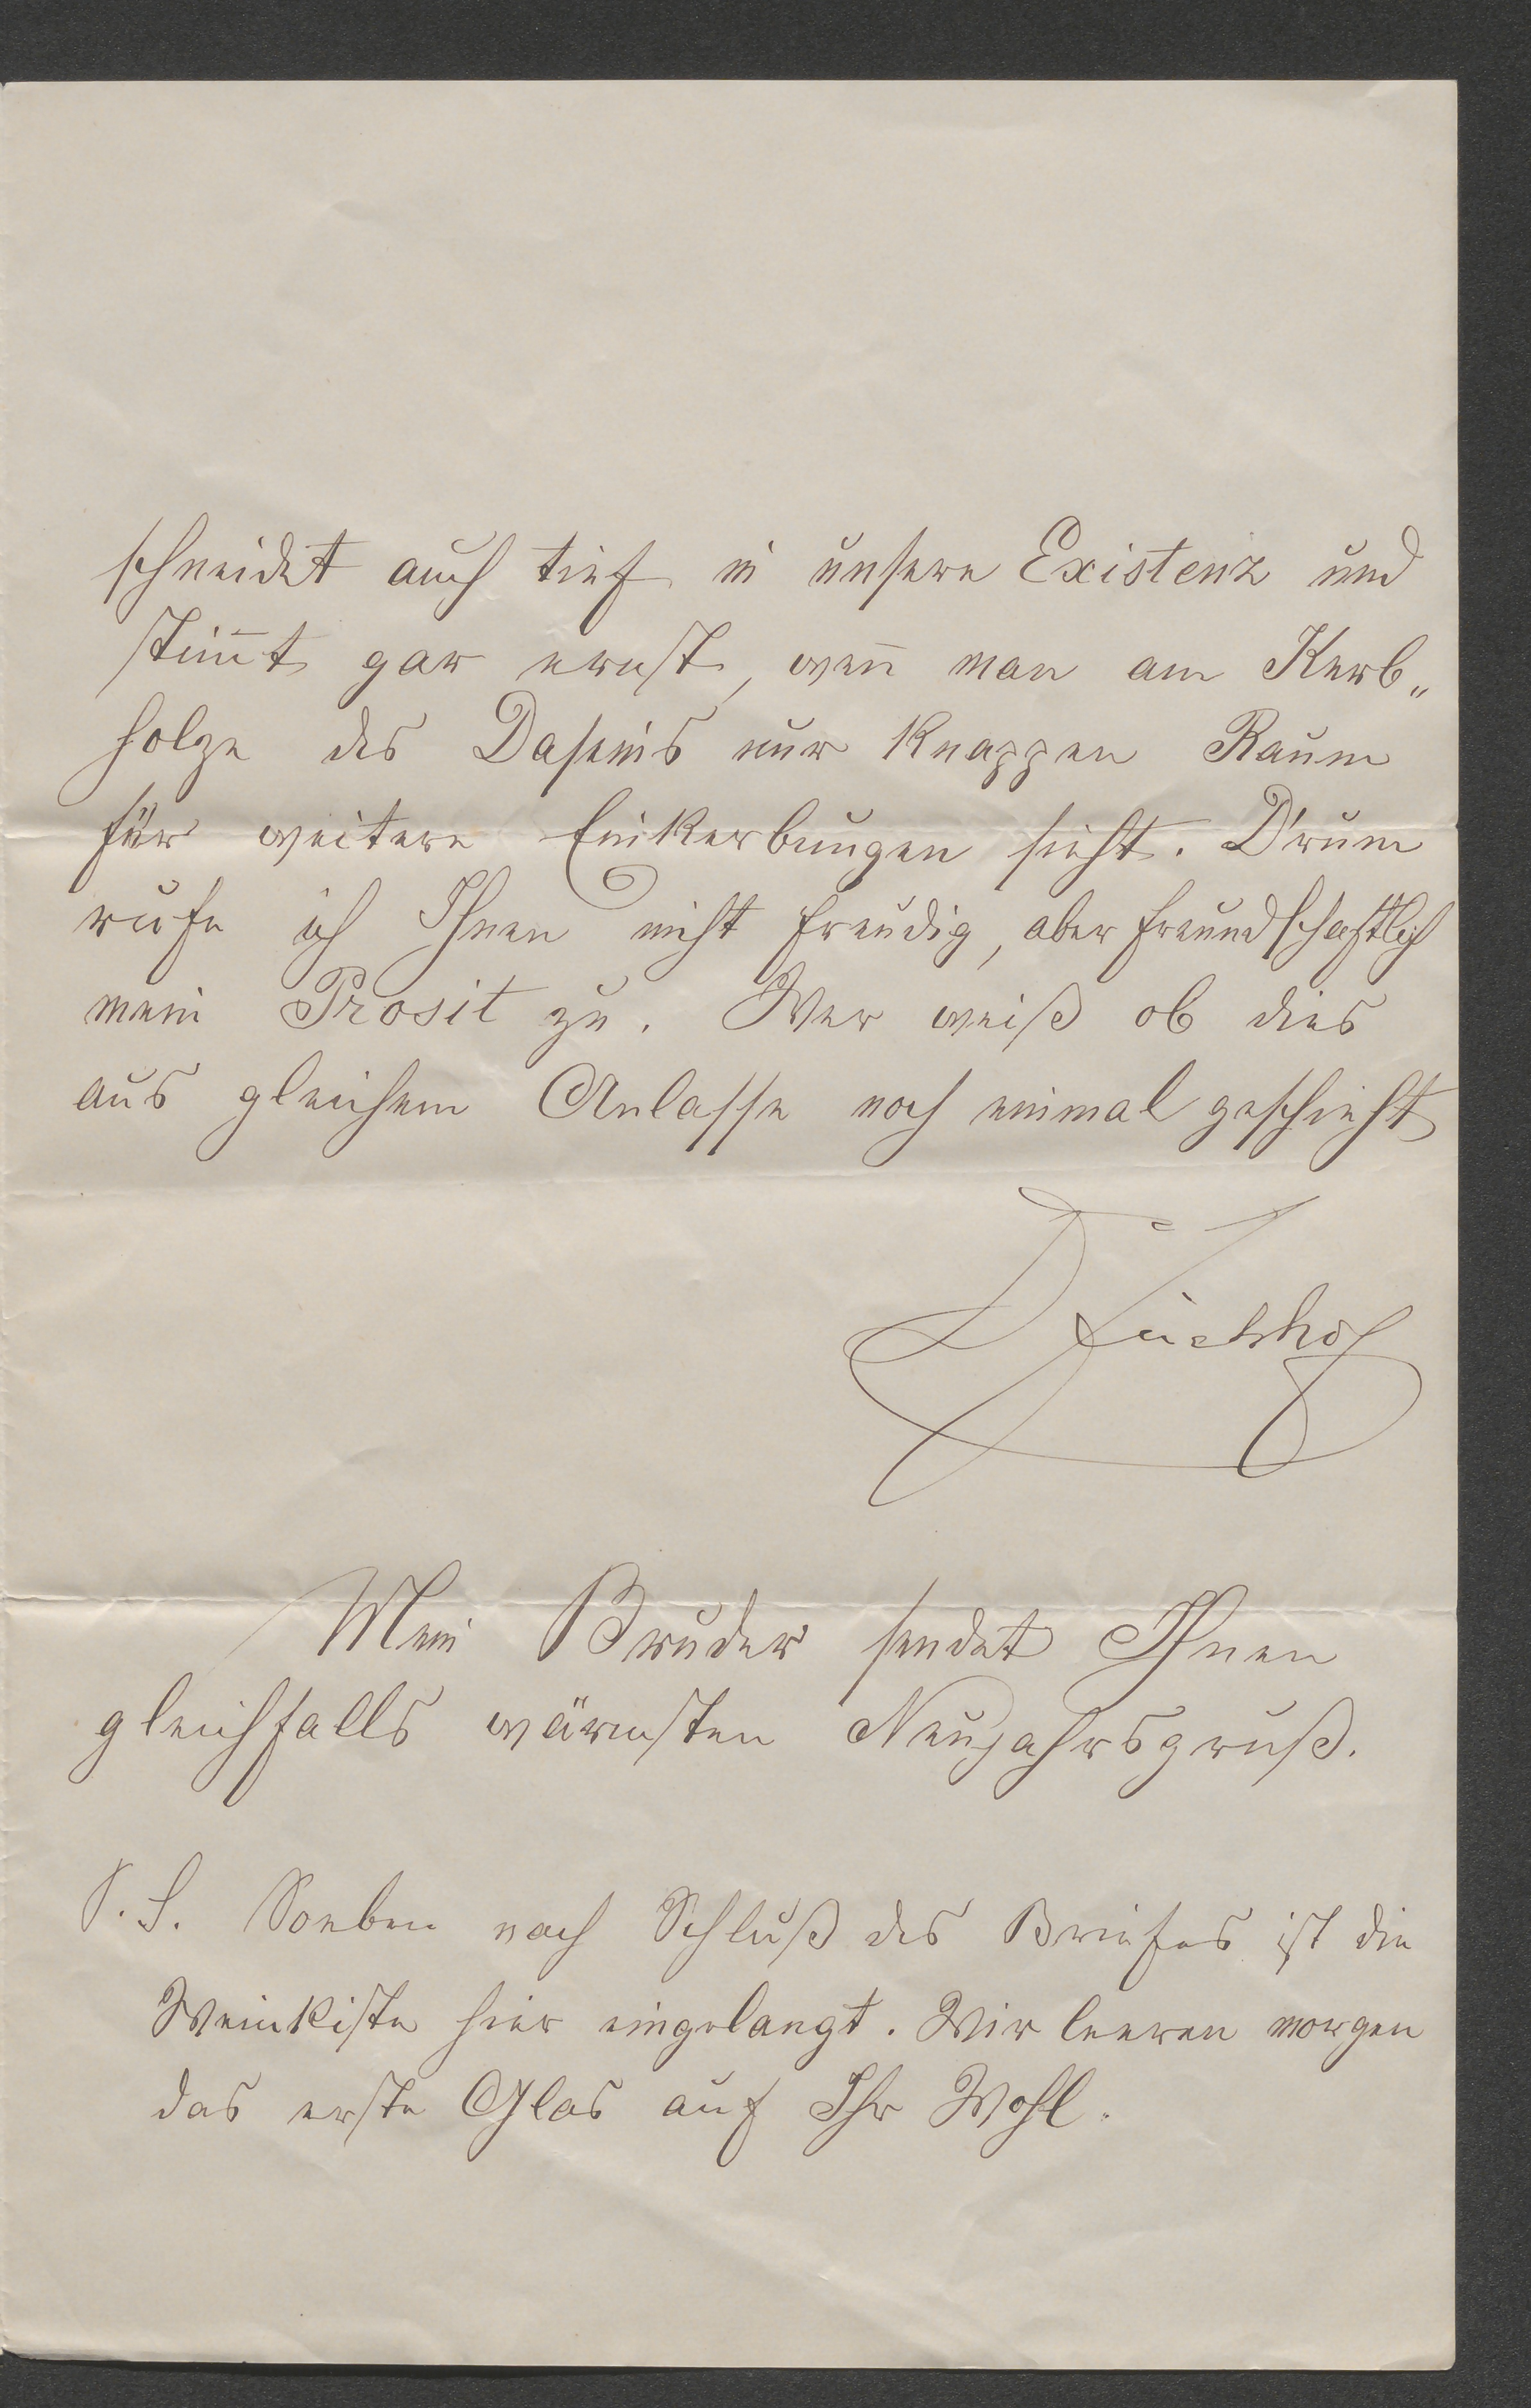 schneidet auch tief in unsere Existenz und
stim̄t gar ernst, wen̄ man am Kerb„
holze des Daseins nur knappen Raum
für weitere Einkerbungen sieht. D'rum
rufe ich Ihnen nicht freudig, aber freundschaftlich
mein Prosit zu. Wer weiß ob dies
aus gleichem Anlasse noch einmal geschieht
Mein Bruder sendet Ihnen
gleichfalls wärmsten Neujahrsgruß.
P.S. Soeben nach Schluß des Briefes ist die
Weinkiste hier eingelangt. Wir leeren morgen
das erste Glas auf Ihr Wohl.